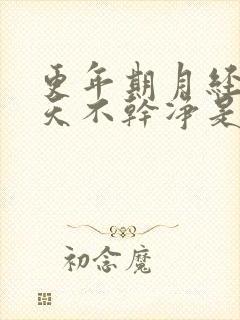 更年期月经
天不幹净是
初念魔